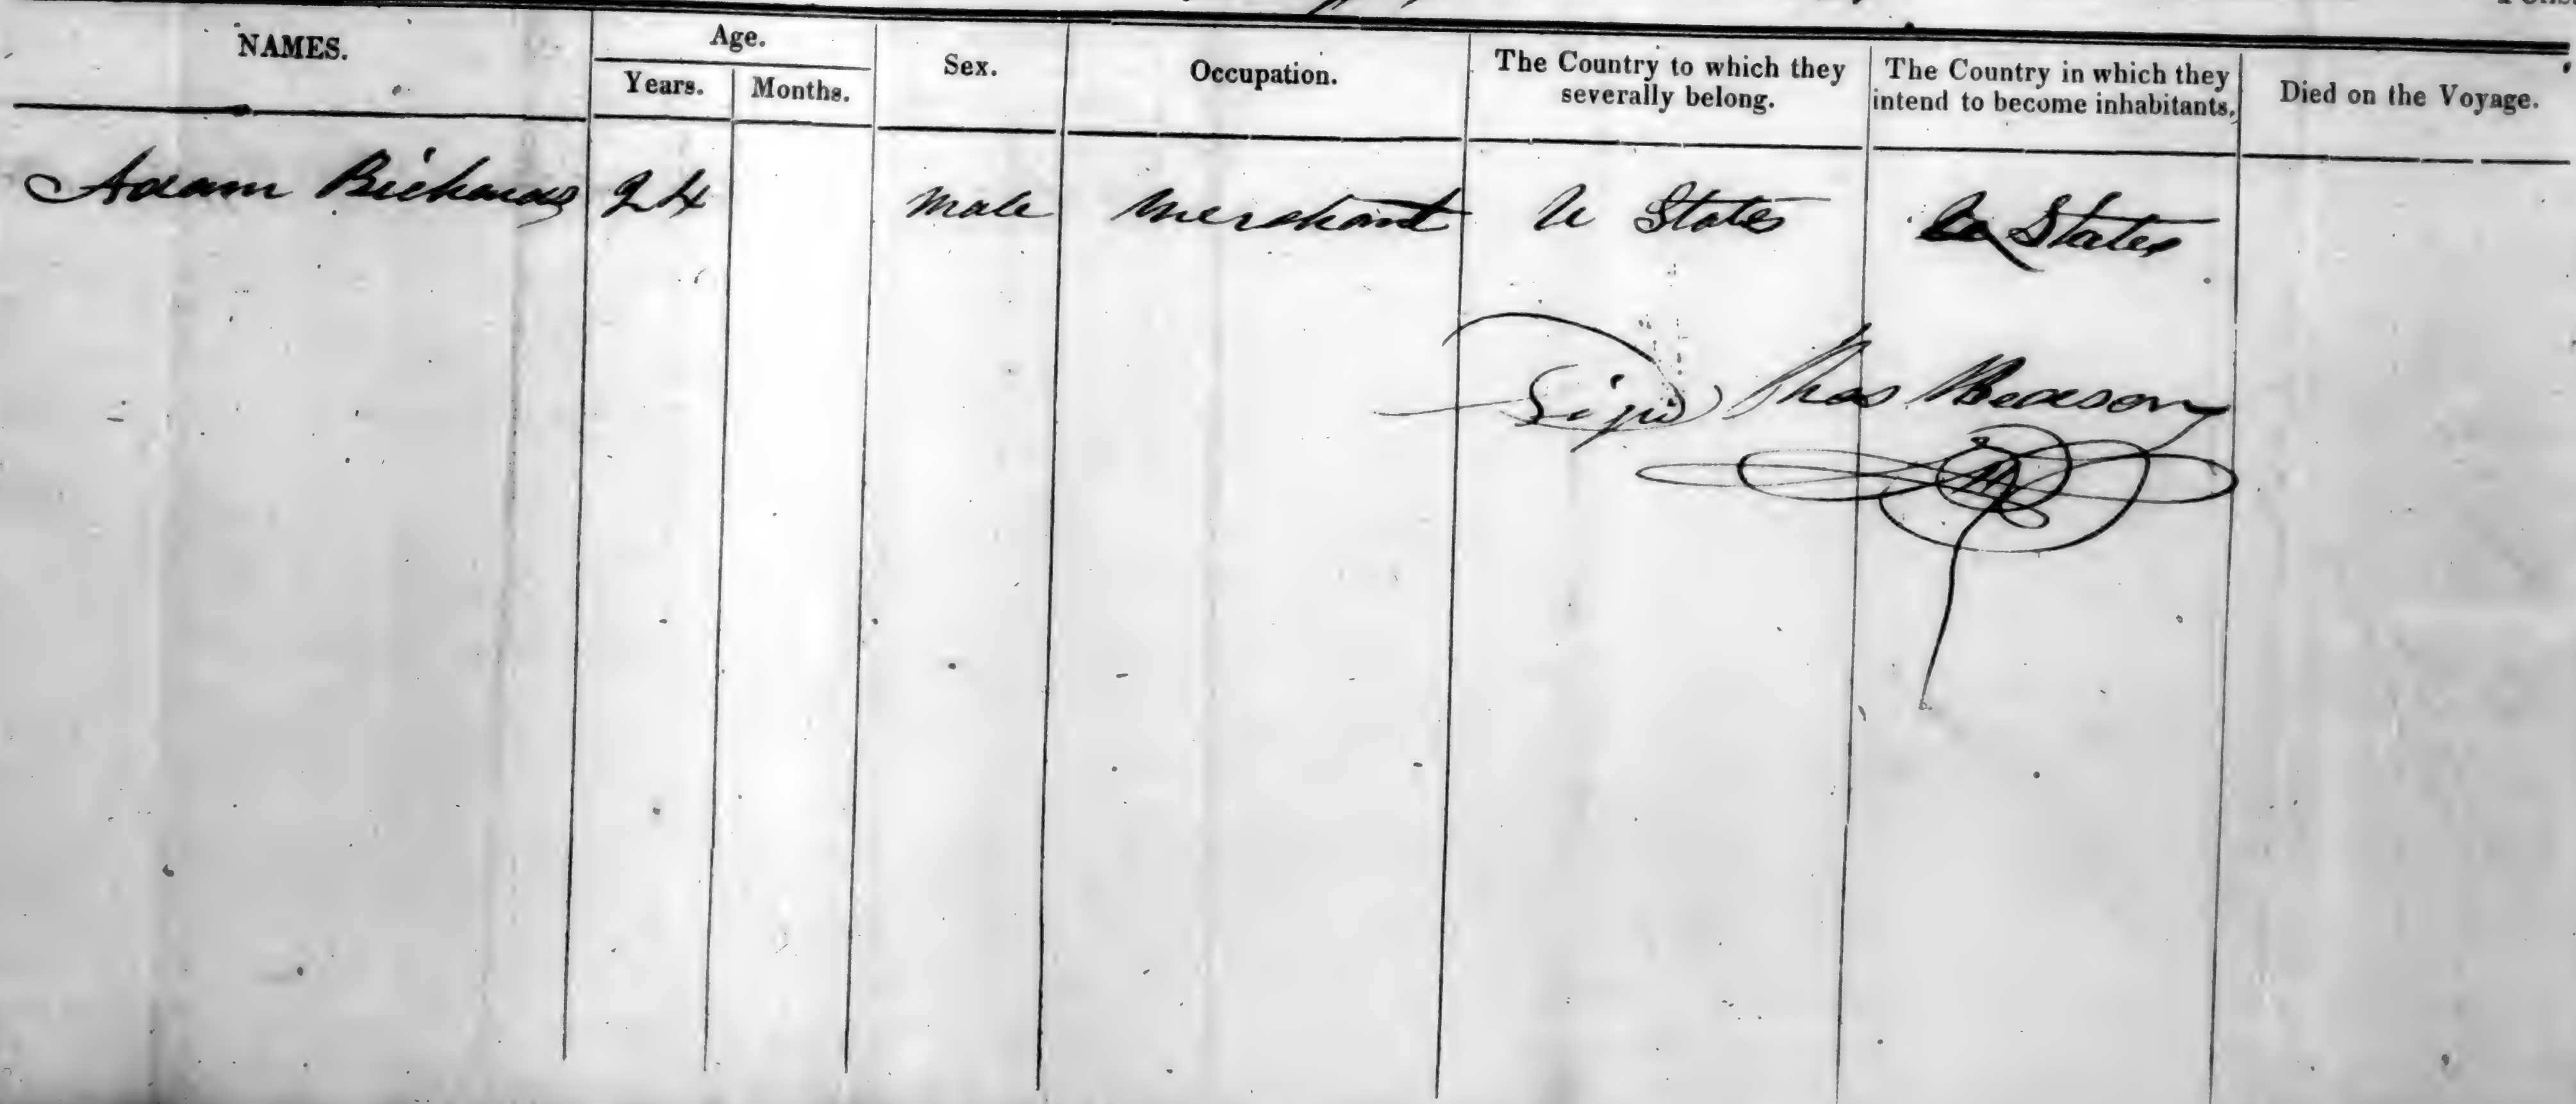 NAMES. Age. Sex. Occupation. The Country to which they severally belong. The Country in which they intend to become inhabitants. Died on the Voyage.
Years. Months.
Adam Richards 24 Male Merchant U States U States
Signd Thos Beason